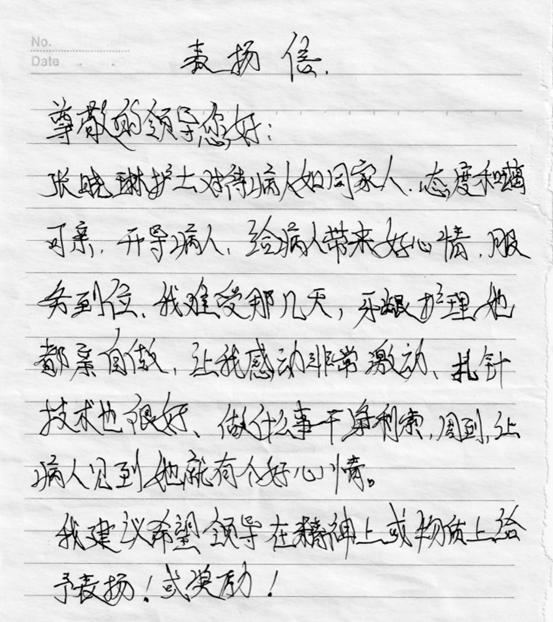 No.
Date
表扬信.
尊敬的领导您好:
张晓琳护士对待病人如同家人.态度和蔼
可亲.开导病人.给病人带来好心情.服
务到位、我难受那几天,牙龈护理她
都亲自做、让我感动非常激动、扎针
技术也很好、做什么事干净利索,周到,让
病人见到她就有个好心情。
我建议希望领导在精神上或物质上给
予表扬!或奖励!